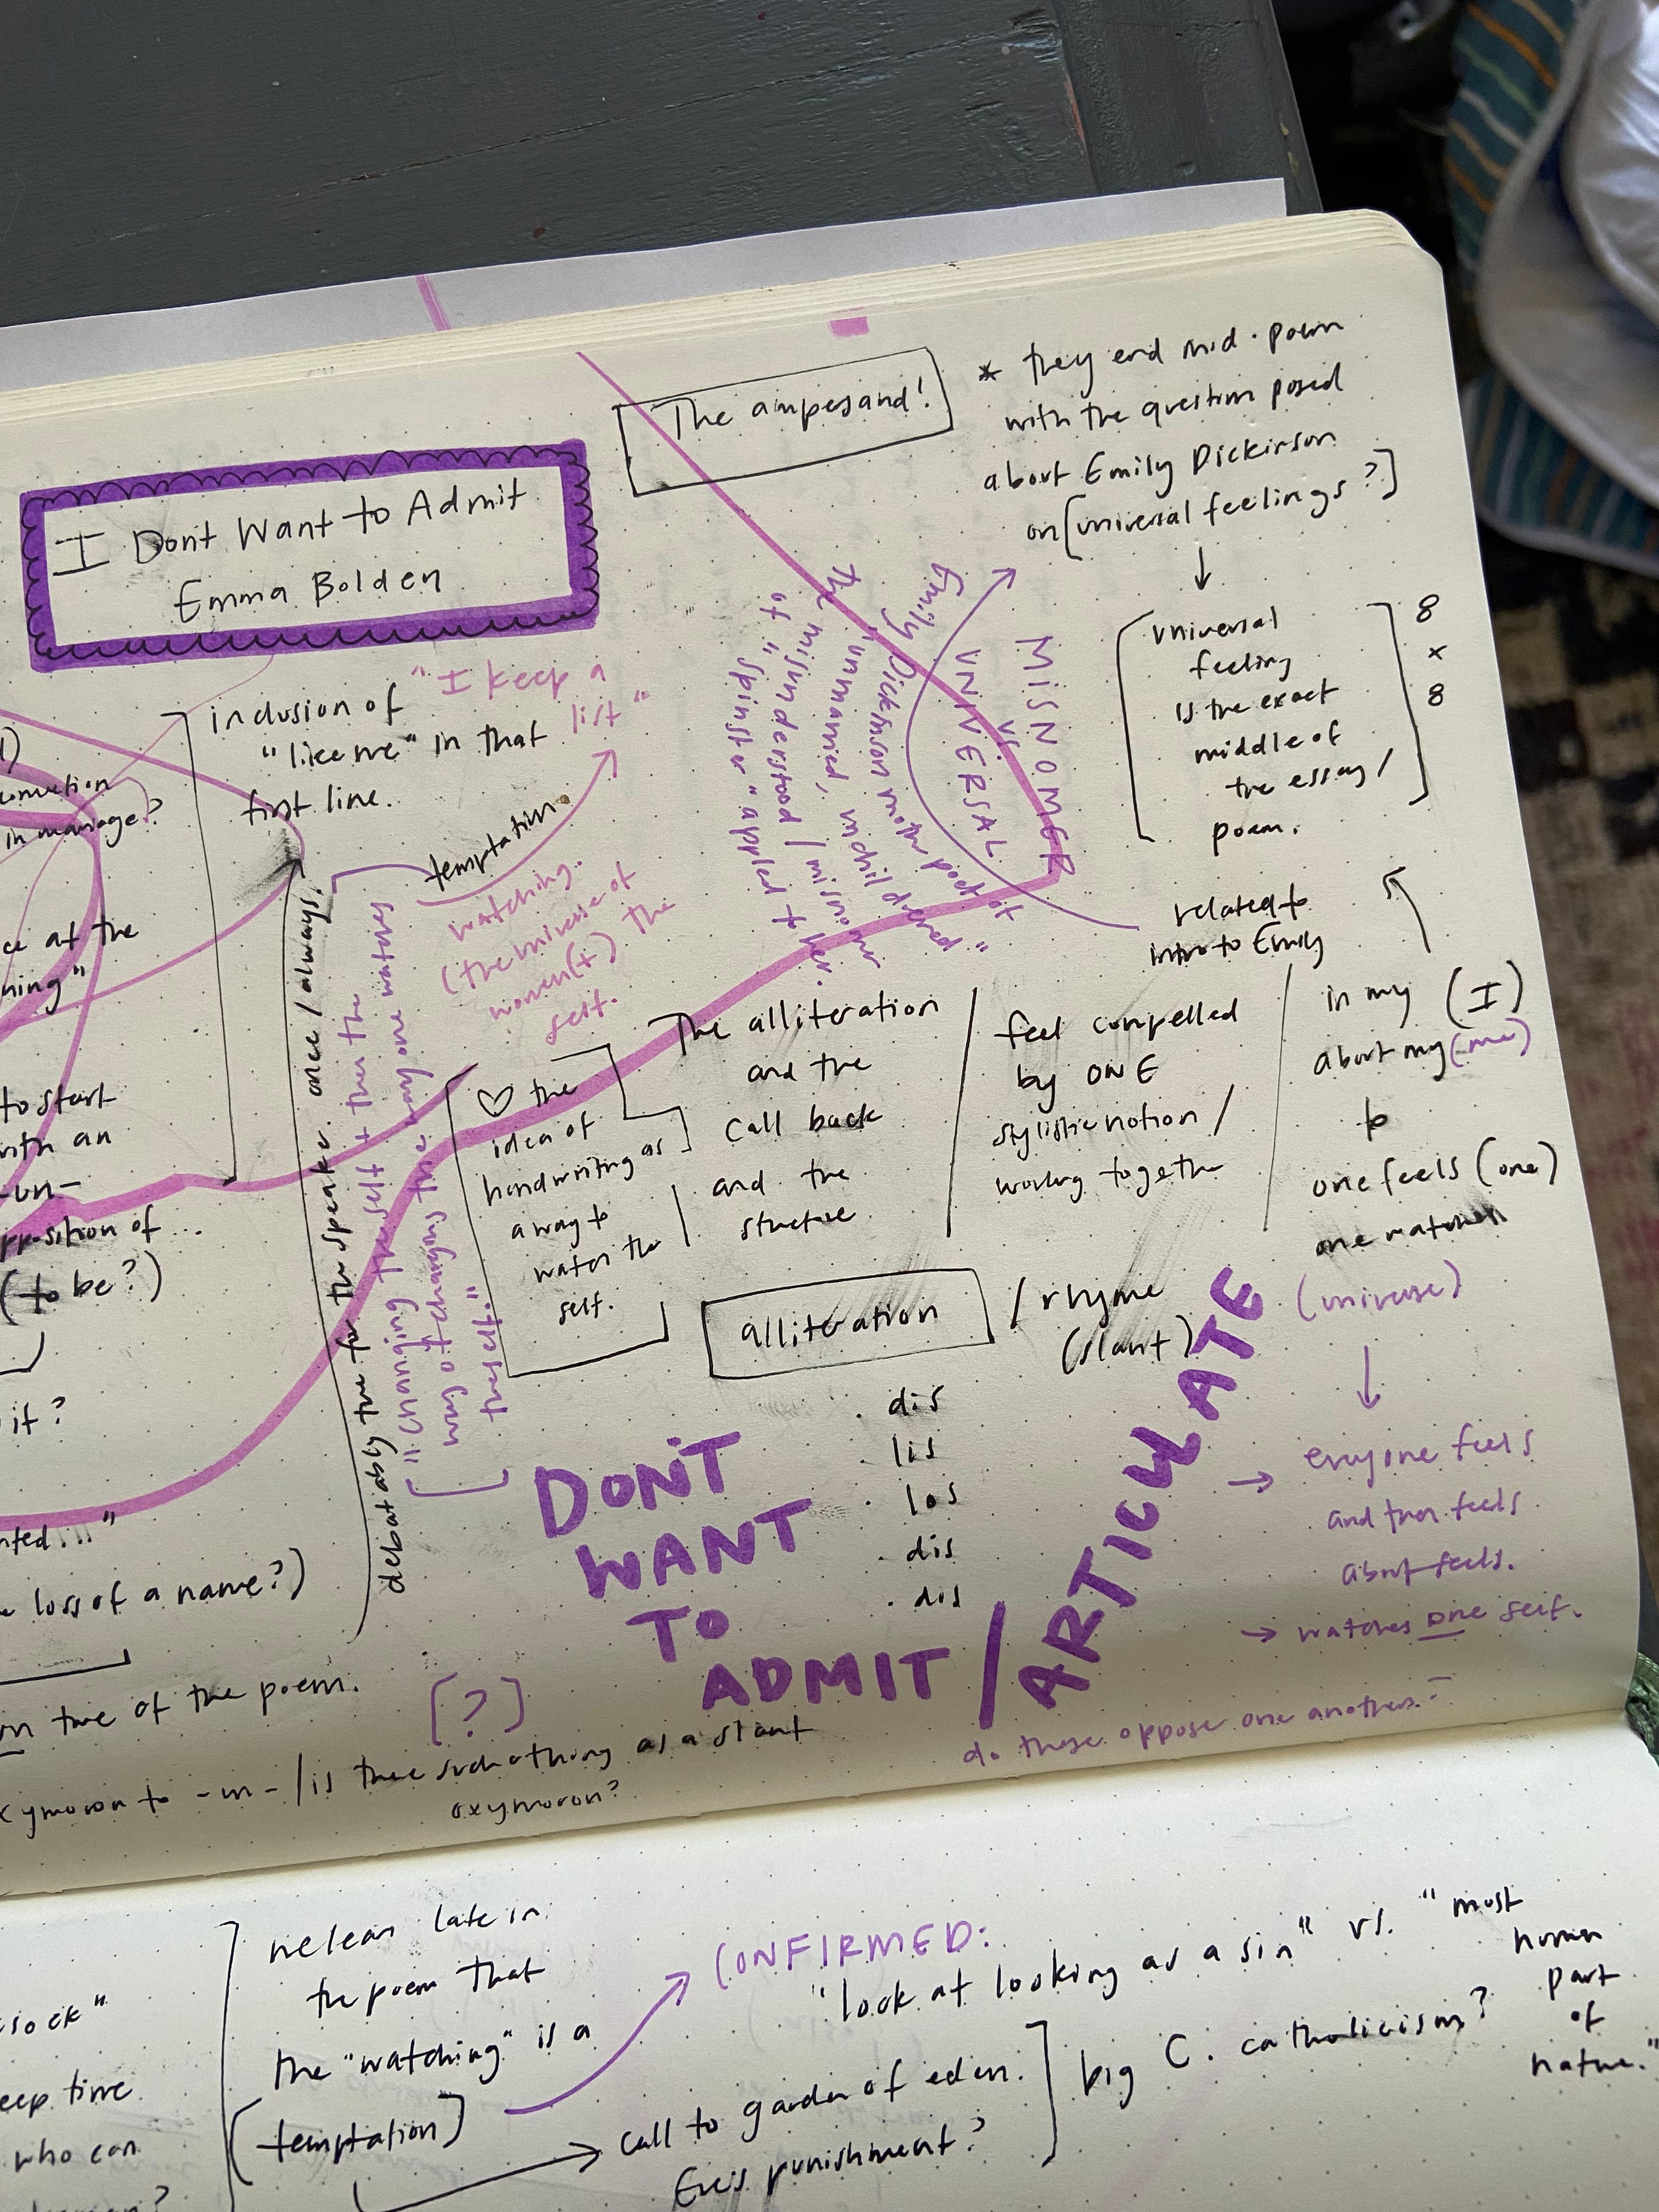 The ampesand!
* they end mid-poem
with the question posed
about Emily Dickinson
on [universal feelings?]
I Dont Want to Admit
Emma Bolden
universal
feeling
is the exact
middle of
the essay/
poem.
8
x
8
MISNOMER
VS.
UNIVERSAL
Emily Dickinson most poet of
"unmarried, unchildrened"
the misunderstood / misnomer
of "spinster" applied to her.
related to
intro to Emily
inclusion of "I keep a
"like me" in that list"
first line.
temptation.
watching.
(the universe of
women(+) the
self.
in marriage?
ce at the
ning"
to start
with an
-un-
pposition of...
(to be?)
it?
nted..."
loss of a name?)
debatably true for the speaker. once/always.
"changing the self + then the
way of changing the way one watches
the self."
♡ the
idea of
handwriting as
a way to
watch the
self.
The alliteration
and the
call back
and the
structure
feel compelled
by ONE
stylistic notion /
working together
in my (I)
about my (me)
to
one feels (one)
one watches
(universe)
everyone feels
and then feels
about feels.
→ watches one self.
alliteration / rhyme
(slant)
. dis
. lis
. los
. dis
. dis
DON'T
WANT
TO
ADMIT / ARTICULATE
do these oppose one another?
true of the poem.
[?]
to -un- / is there such a thing as a slant
oxymoron?
we learn late in
the poem that
the "watching" is a
(temptation)
CONFIRMED:
"look at looking as a sin" vs. "most
human
part
of
nature."
call to garden of eden.
Eve's punishment?
big C. catholicism?
sock"
eep time
who can